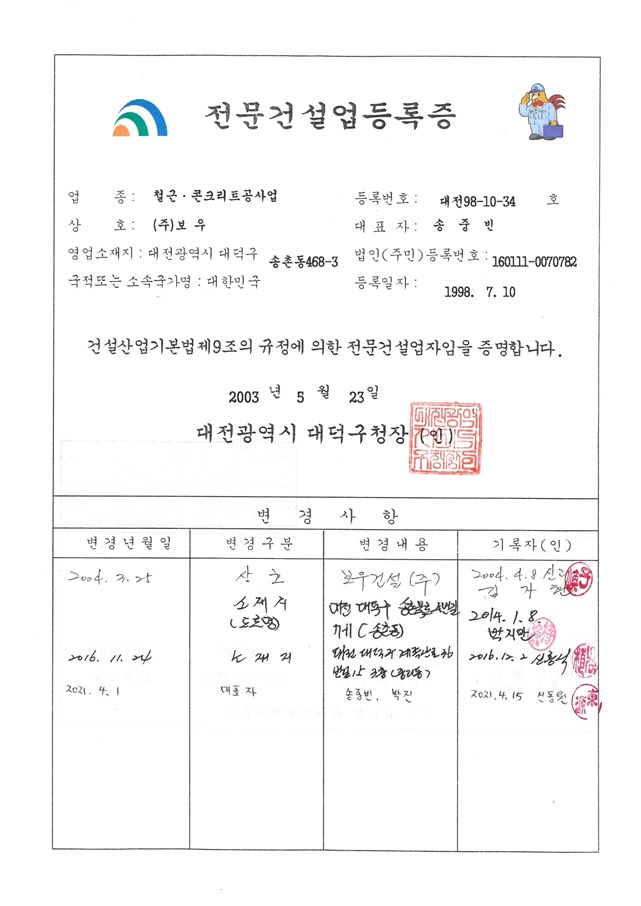 전문건설업등록증
업 종 : 철근·콘크리트공사업
등록번호 : 대전98-10-34 호
상 호 : (주)보 우
대 표 자 : 송 중 빈
영업소재지 : 대전광역시 대덕구 송촌동468-3
법인(주민)등록번호 : 160111-0070782
국적또는 소속국가명 : 대한민국
등록일자 : 1998. 7. 10
건설산업기본법제9조의 규정에 의한 전문건설업자임을 증명합니다.
2003 년 5 월 23일
대전광역시 대덕구청장 (인)
변 경 사 항
변경년월일 변경구분 변경내용 기록자(인)
2004. 3. 25 상호 보우건설(주) 2004. 4. 8
소재지 대전 대덕구
(도로명) (송촌동) 2014. 1. 8.
박지만
2016. 11. 24 소재지 대전 대덕구 계족산로 2016. 12. 2
2021. 4. 1 대표자 송중빈, 박진 2021. 4. 15